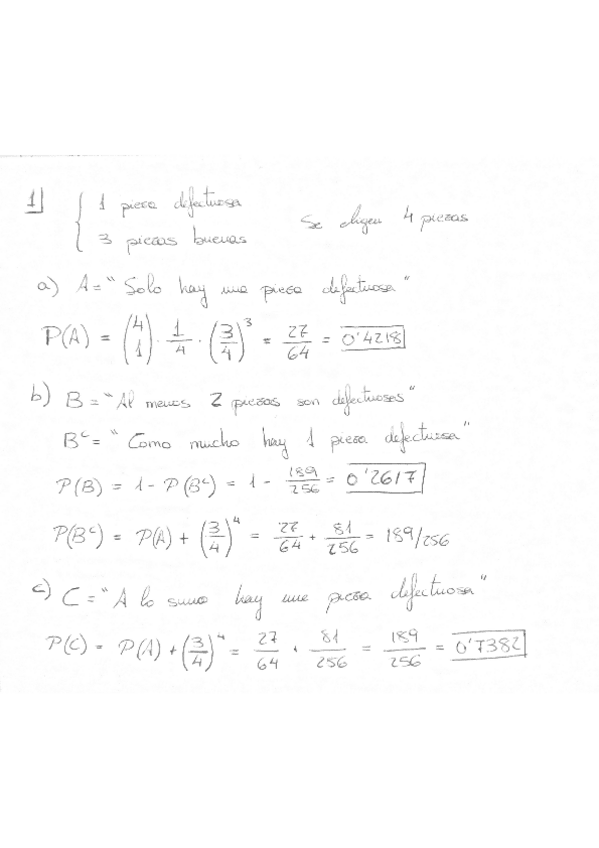 1) { 1 pieza defectuosa
3 piezas buenas
Se eligen 4 piezas
a) A = "Solo hay una pieza defectuosa"
P(A) = (4 1) · 1/4 · (3/4)^3 = 27/64 = 0'4218
b) B = "Al menos 2 piezas son defectuosas"
B^c = "Como mucho hay 1 pieza defectuosa"
P(B) = 1 - P(B^c) = 1 - 189/256 = 0'2617
P(B^c) = P(A) + (3/4)^4 = 27/64 + 81/256 = 189/256
c) C = "A lo sumo hay una pieza defectuosa"
P(C) = P(A) + (3/4)^4 = 27/64 + 81/256 = 189/256 = 0'7382